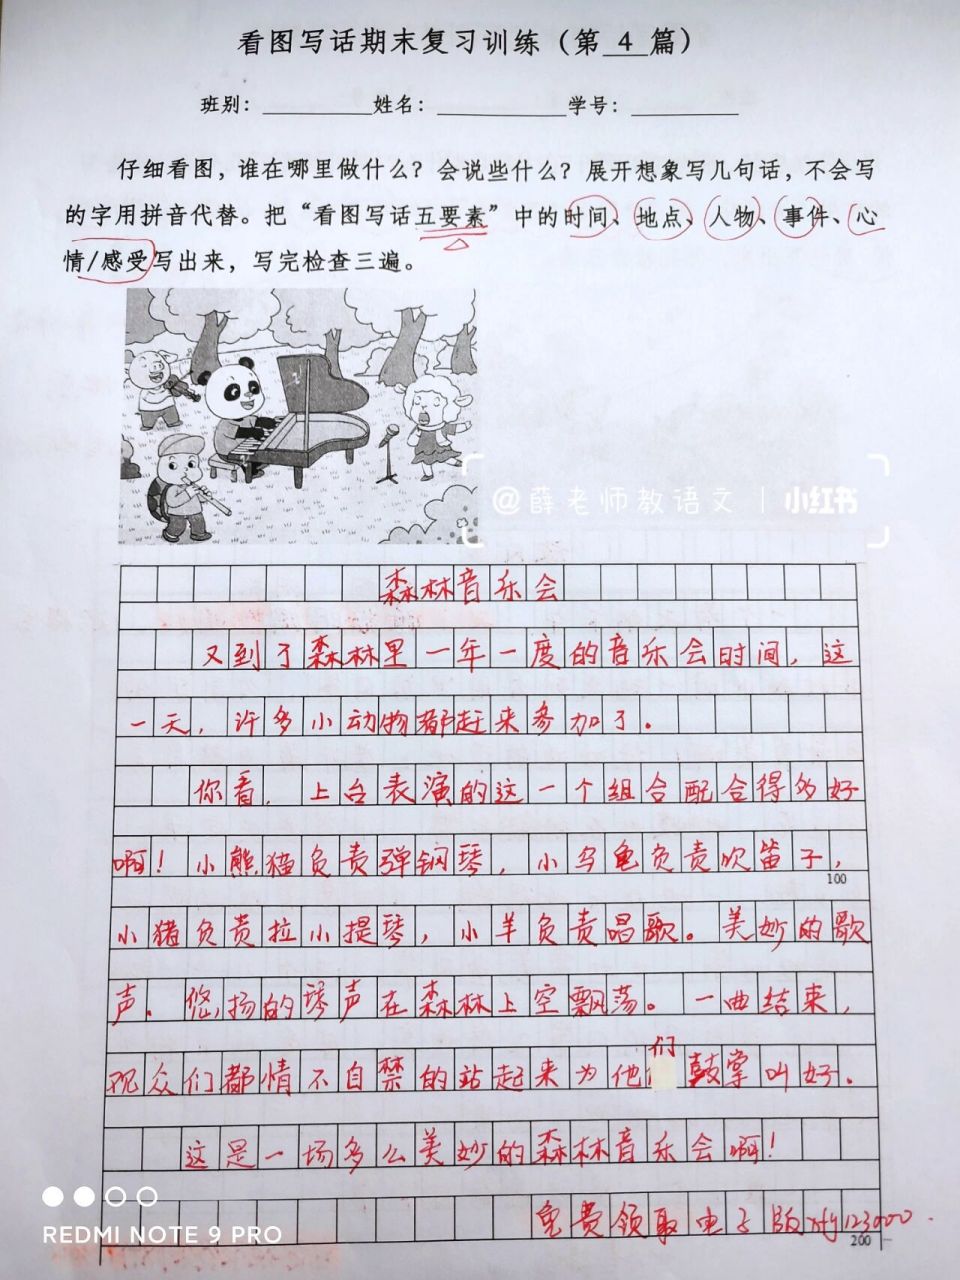 看图写话期末复习训练（第 4 篇）
班别：姓名：学号：
仔细看图，谁在哪里做什么？会说些什么？展开想象写几句话，不会写
的字用拼音代替。把“看图写话五要素”中的时间、地点、人物、事件、心
情/感受写出来，写完检查三遍。
@薛老师教语文 | 小红书
森林音乐会
又到了森林里一年一度的音乐会时间，这
一天，许多小动物都赶来参加了。
你看，上台表演的这一个组合配合得多好
啊！小熊猫负责弹钢琴，小乌龟负责吹笛子，
100
小猪负责拉小提琴，小羊负责唱歌。美妙的歌
声．悠扬的琴声在森林上空飘荡。一曲结束，
观众们都情不自禁的站起来为他们鼓掌叫好．
这是一场多么美妙的森林音乐会啊！
免费领取电子版
200
REDMI NOTE 9 PRO